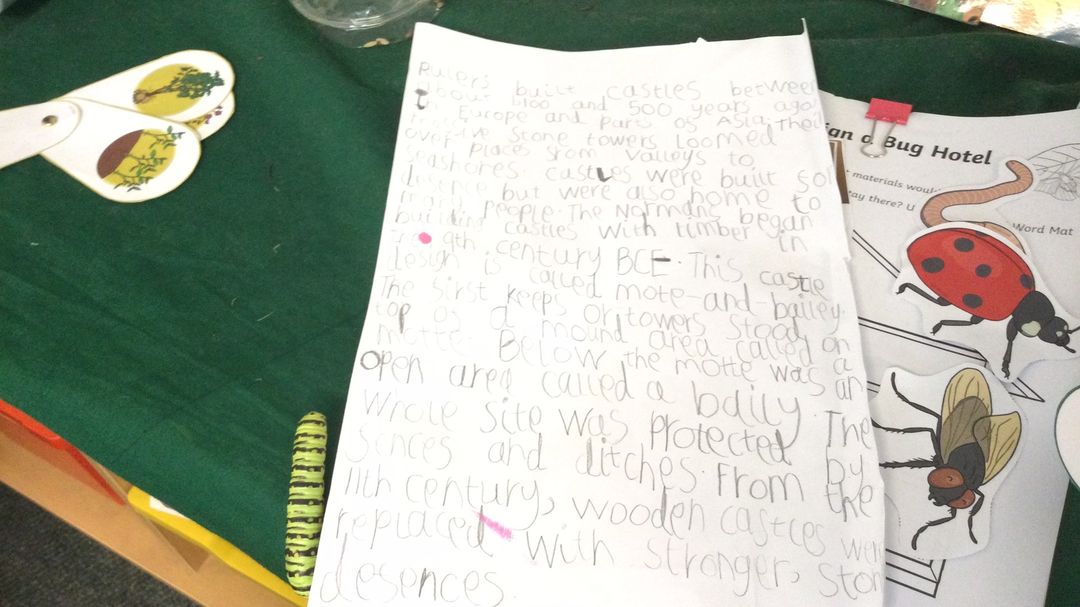 Rulers built castles between
about 1100 and 500 years ago
in Europe and parts os Asia, their
stone towers loomed
over places srom valleys to
seashores. castles were built sor
desence but were also home to
many people. The Normans began
building castles with timber in
the 9th century BCE. This castle
design is called mote-and-bailey.
The sirst keeps or towers stood on
top os a mound area called a
motte. Below the motte was an
open area called a baily. The
whole site was protected by
sences and ditches. From the
11th century, wooden castles were
replaced with stronger, ston
desences.
Bug Hotel
materials would
stay there? U
Word Mat